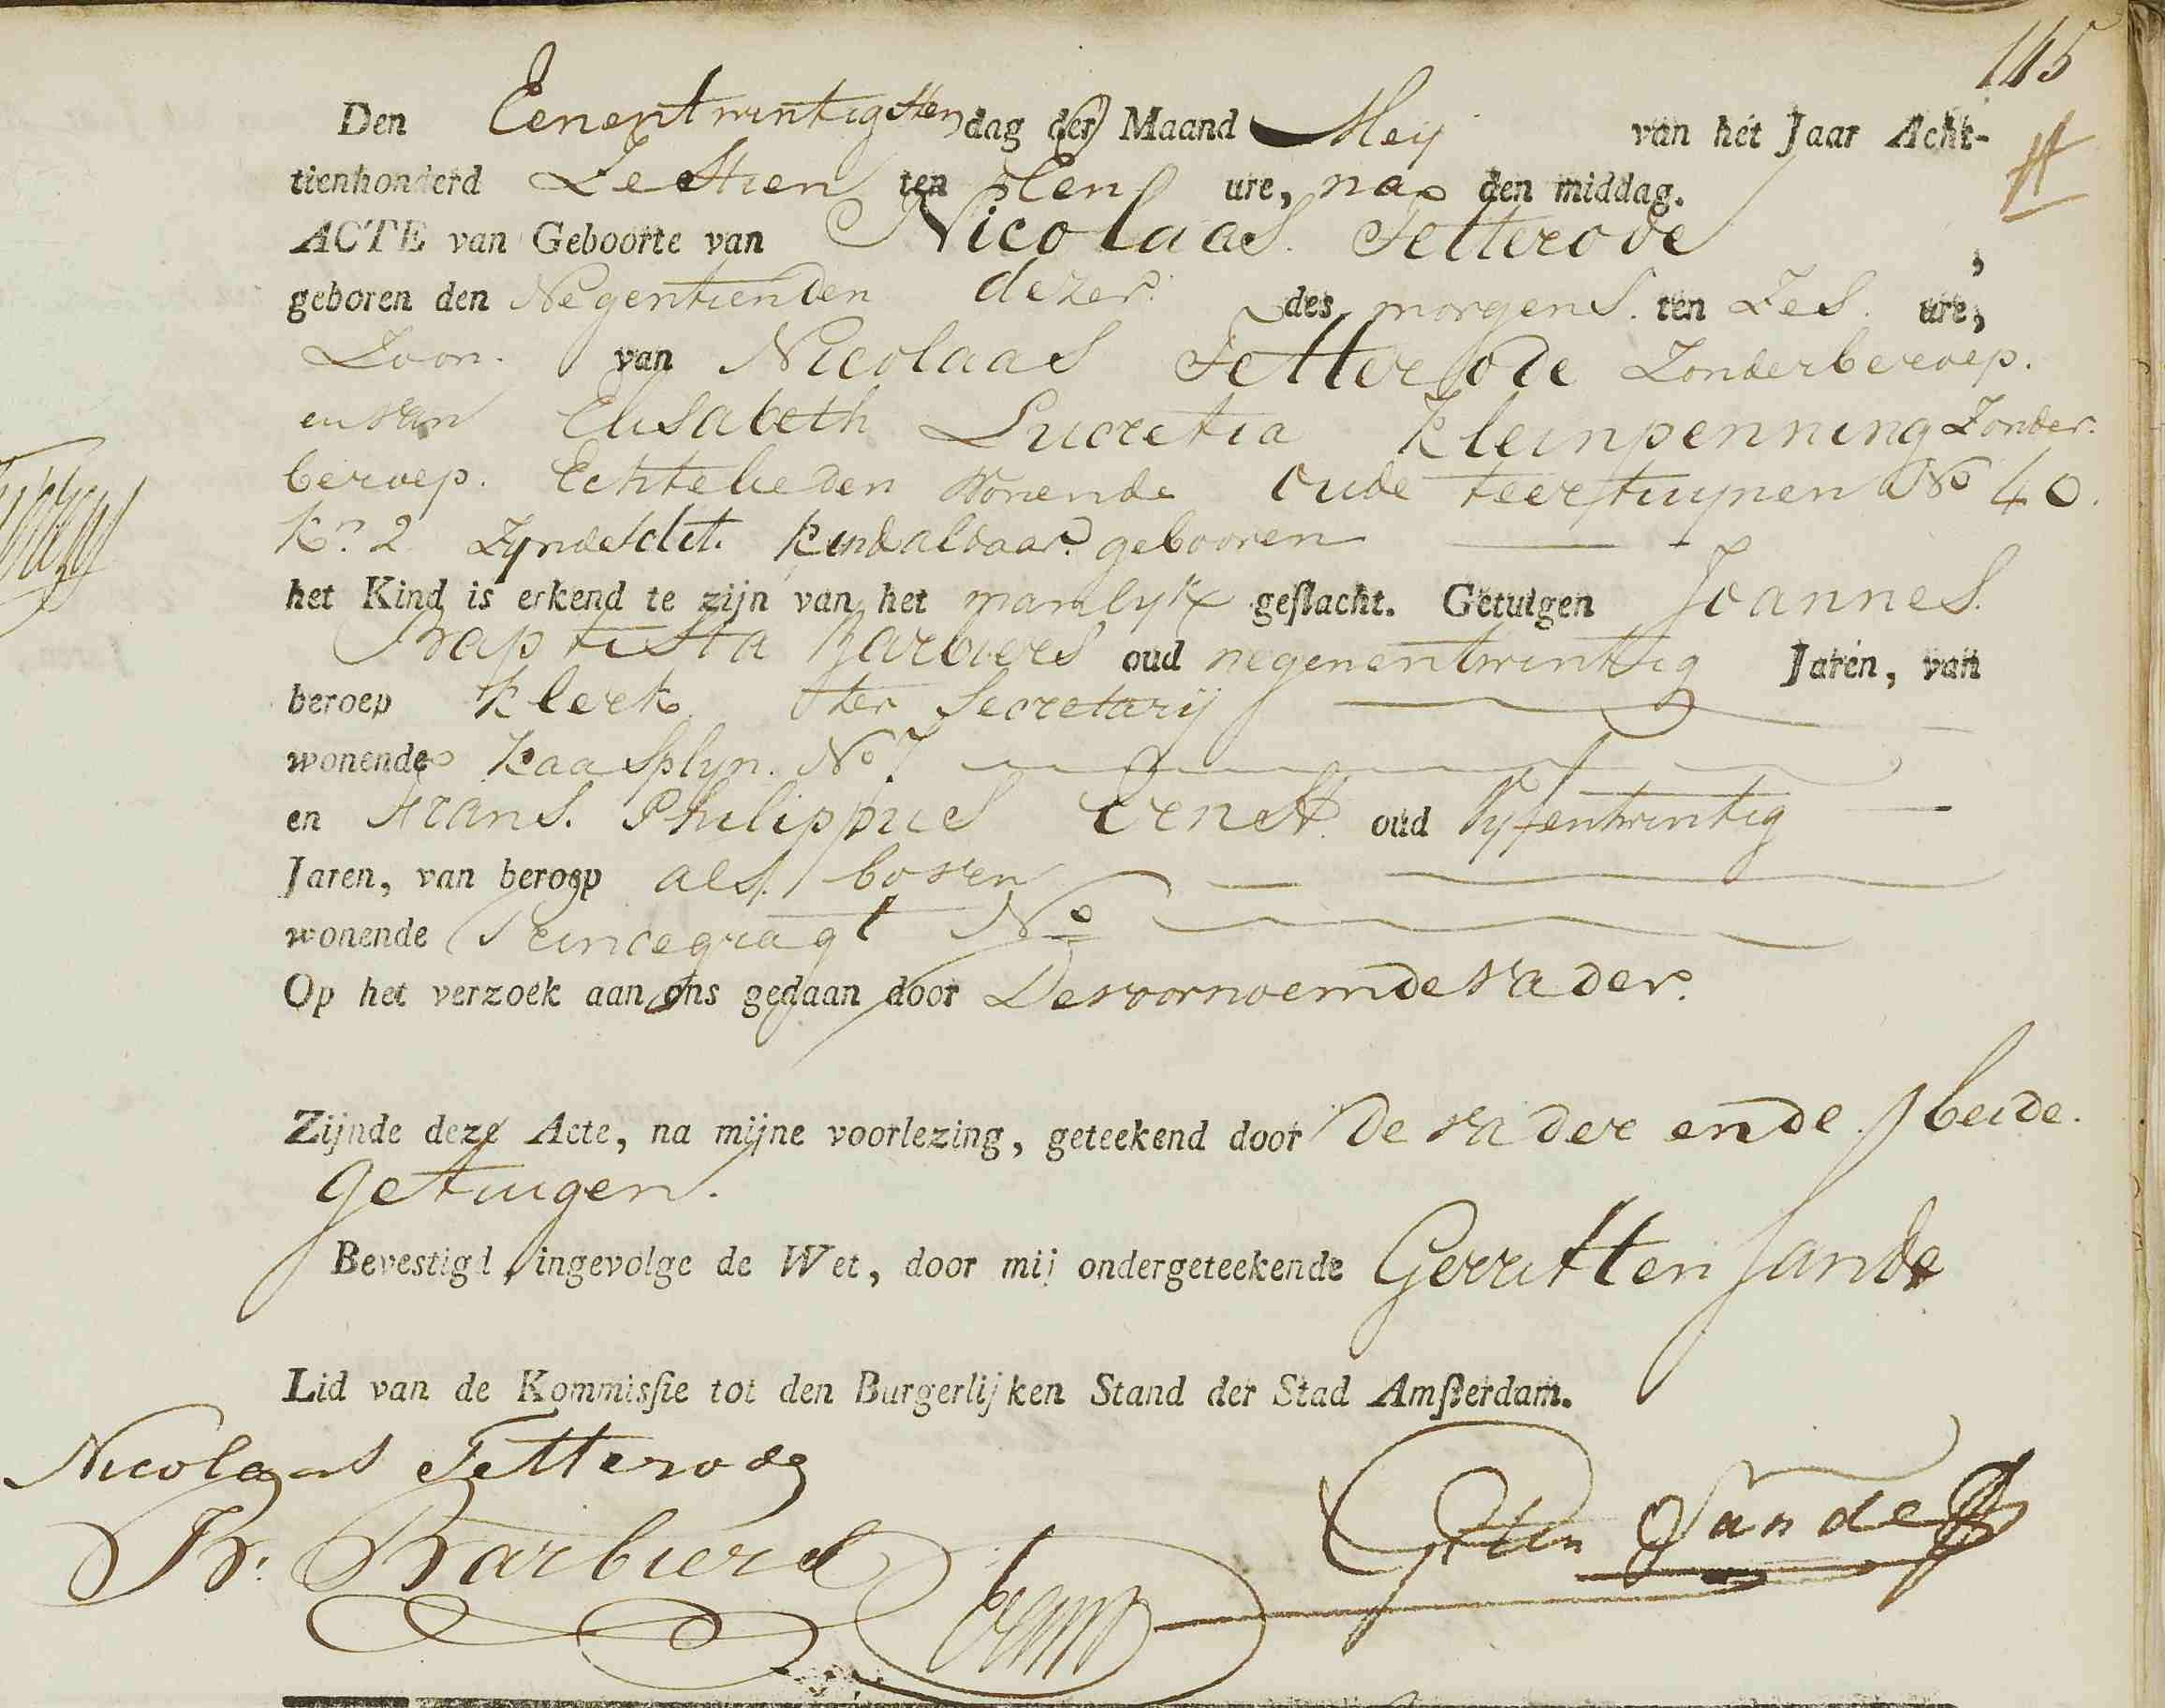 115
Den Eenentwintigsten dag der Maand Meij van het Jaar Acht-
tienhonderd Zestien ten Een ure, na den middag.
ACTE van Geboorte van Nicolaas Tetterode,
geboren den Negentienden dezer des morgens ten Zes ure,
Zoon van Nicolaas Tetterode Zonder beroep.
en van Elisabeth Lucretia Kleinpenning Zonder
beroep. Echtelieden Wonende Oude teertuynen No 40.
Kn. 2 Zynde dit Kind aldaar gebooren
het Kind is erkend te zijn van het manlyk geslacht. Getuigen Joannes
Baptista Barbiers oud negenentwintig Jaren, van
beroep Klerk ter Secretarij
wonende Kaasplyn. No 7
en Frans Philippus Ernst oud Vyfentwintig
Jaren, van beroep als boven
wonende Princegragt No
Op het verzoek aan ons gedaan door De voornoemde vader.
Zijnde deze Acte, na mijne voorlezing, geteekend door De vader en de beide
getuigen.
Bevestigd ingevolge de Wet, door mij ondergeteekende Gerrit ten Sande
Lid van de Kommissie tot den Burgerlijken Stand der Stad Amsterdam.
Nicolaas Tetterode
Barbiers
G ten Sande